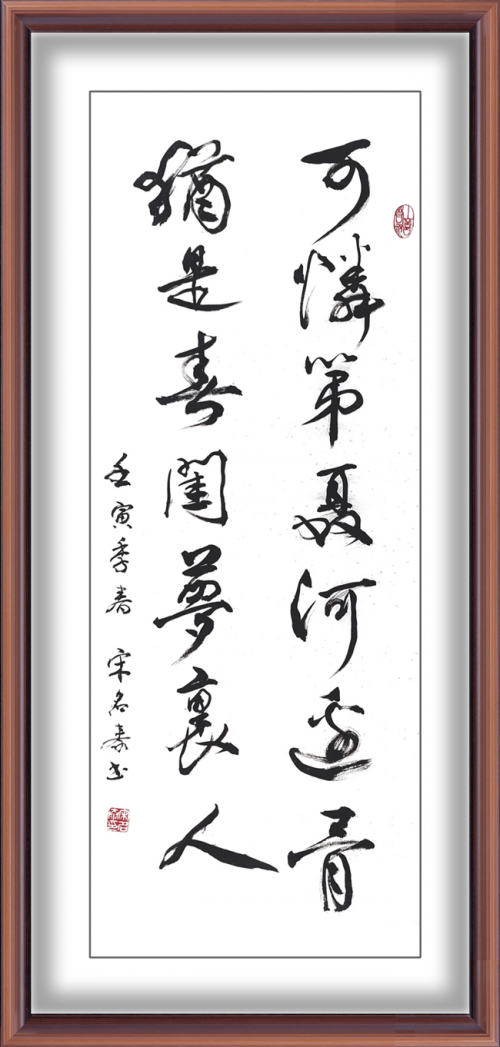 可憐第河邊骨
猶是春閨夢裏人
壬寅季春 宋名书